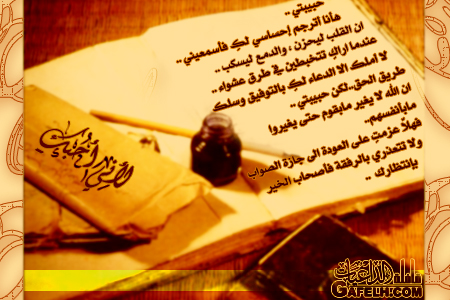 حبيبتي ..
هأنا أترجم إحساسي لك فاسمعيني ..
ان القلب ليحزن ، والدمع ليسكب ..
عندما اراك تتخبطين في طرق عشواء ..
لا أملك الا الدعاء لك بالتوفيق وسلك
طريق الحق..لكن حبيبتي ..
ان الله لا يغير مابقوم حتى يغيروا
مابأنفسهم..
فهلا عزمتِ على العودة الى جازة الصواب
ولا تتعذري بالرفقة فأصحاب الخير
بإنتظارك ..
لأنني أحبك
GAFELH.COM